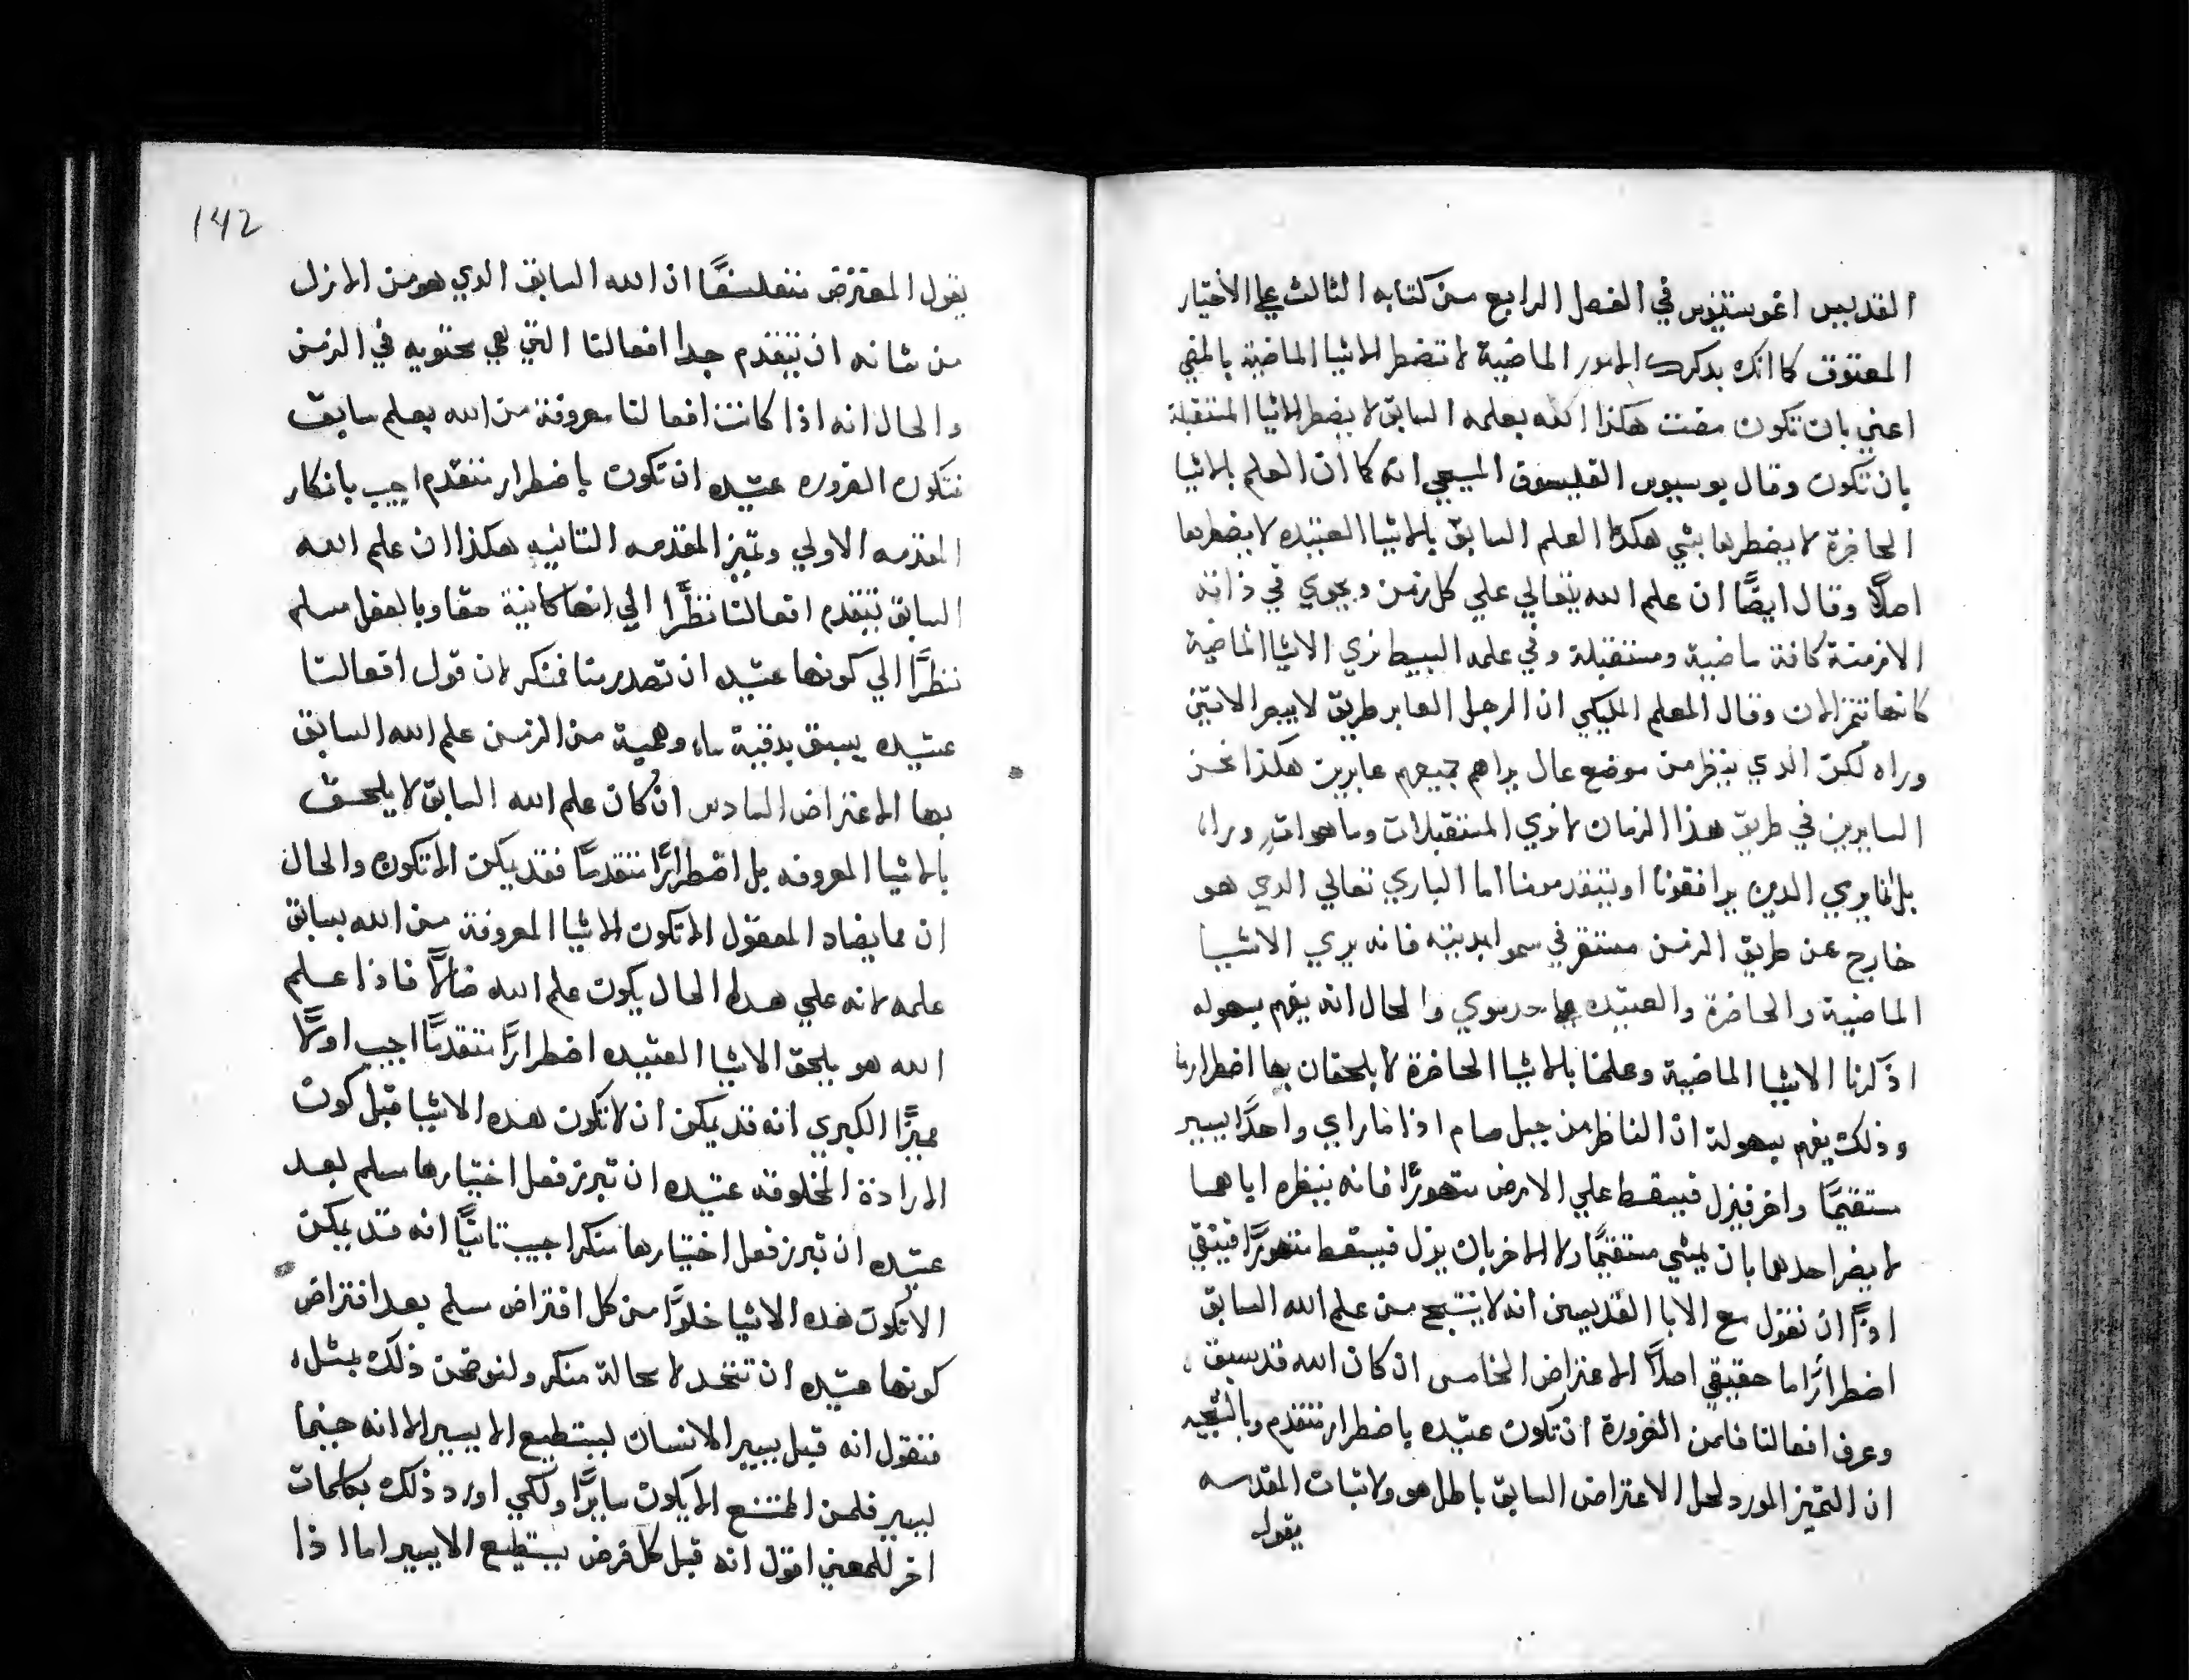 القديس اغوستينوس في الفصل الرابع من كتابه الثالث علي الاختيار
المعتوق كما انك بدكرك الامور الماضية لا تضطر الاشيا الماضية بالمضي
اعني بان تكون مضت هكذا الله بعلمه السابق لا يضطر الاشيا المستقبلة
بان تكون وقال بوسيوس الفيلسوف المسيحي انه كما ان العلم بالاشيا
الحاضرة لا يضطرها بشي هكذا العلم السابق بالاشيا العتيده لا يضطرها
اصلاً وقال ايضًا ان علم الله يتعالي علي كل زمن ويحوي في ذاته
الازمنة كافة ماضية ومستقبلة وفي علمه البسيط نري الاشيا الماضية
كانها تتم الان وقال المعلم المليكي ان الرجل العابر طريق لا يبصر الاتين
وراه لكن الدي ينظر من موضع عال يراهم جميعهم عابرين هكذا نحن
السايرين في طريق هذا الزمان لا نري المستقبلات وما هو اتٍ ورانا
بل انما يري الدين يرافقونا او يتقدمونا اما الباري تعالي الدي هو
خارج عن طريق الزمن مستقر في سمو ابديته فانه يري الاشيا
الماضية والحاضرة والعتيده بها حد سوي والحال انه يفهم بسهوله
اذكرنا الاشيا الماضية وعلمنا بالاشيا الحاضرة لا يلحقان بها اضطرارما
وذلك يفهم بسهولة ان الناظر من جبل سام اذا ما راي واحدًا يسير
مستقيمًا واخر فيزل فيسقط علي الارض متهورًا فانه بنظره اياهما
لا يضر احدهما بان يمشي مستقيمًا ولا الاخر بان يزل فيسقط متهورًا فينتقي
اذًا ان نقول مع الابا القديسين انه لا ينتج من علم الله السابق
اضطرارًا ما حقيقي اصلاً الاعتراض الخامس ان كان الله قد سبق
وعرف افعالنا فلمن الضرورة ان تكون عتيده باضطرار متقدم وبالنتيجه
ان التميز المورد لحل الاعتراض السابق باطل هو ولاتبات المقدمه
يقول
142
يقول المعترض متفلسفًا ان الله السابق الدي هو من الازل
من شانه ان يتقدم جدا افعالنا التي هي محتويه في الزمن
والحال انه اذا كانت افعالنا معروفة من الله بعلم سابق
فتكون الضروره عتيده ان تكون باضطرار متقدم اجيب بانكار
المقدمه الاولي وتميز المقدمه التانيه هكذا ان علم الله
السابق يتقدم افعالنا نظرًا الي انها كاينة حقا وبالفعل مسلم
نظرًا الي كونها عتيده ان تصدر منا فمنكر لان قول افعالنا
عتيده يسبق بدقيقة ما وهمية من الزمن علم الله السابق
بها الاعتراض السادس ان كان علم الله السابق لا يلحق
بالاشيا المعروفه بل اضطرارًا متقدمًا فقد يمكن الا تكون والحال
ان مما يضاد المعقول الا تكون الاشيا المعروفة من الله بسابق
علمه لانه علي هدا الحال يكون علم الله ضالاً فاذا علم
الله هو يلحق الاشيا العتيده اضطرارًا متقدمًا اجيب اولاً
مميزًا الكبري انه قد يمكن ان لا تكون هده الاشيا قبل كون
الارادة المخلوقه عتيده ان تبرز فعل اختيارها سلم بعد
عتيده ان تبرز فعل اختيارها منكر اجيب تانيًا انه قد يمكن
الا تكون هده الاشيا خلوًا من كل افتراض سلم بعد افتراض
كونها عتيده ان تتخد لا محالة منكر ولنوضحن ذلك بمثل
فنقول انه قبل يسير الانسان ليستطيع الا يسير الا انه حينما
يسير فلمن الممتنع الا يكون سايرًا ولكي اورد ذلك بكلمات
اخر للمعني اقول انه قبل كل فرض يستطيع الا يسير اما اذا